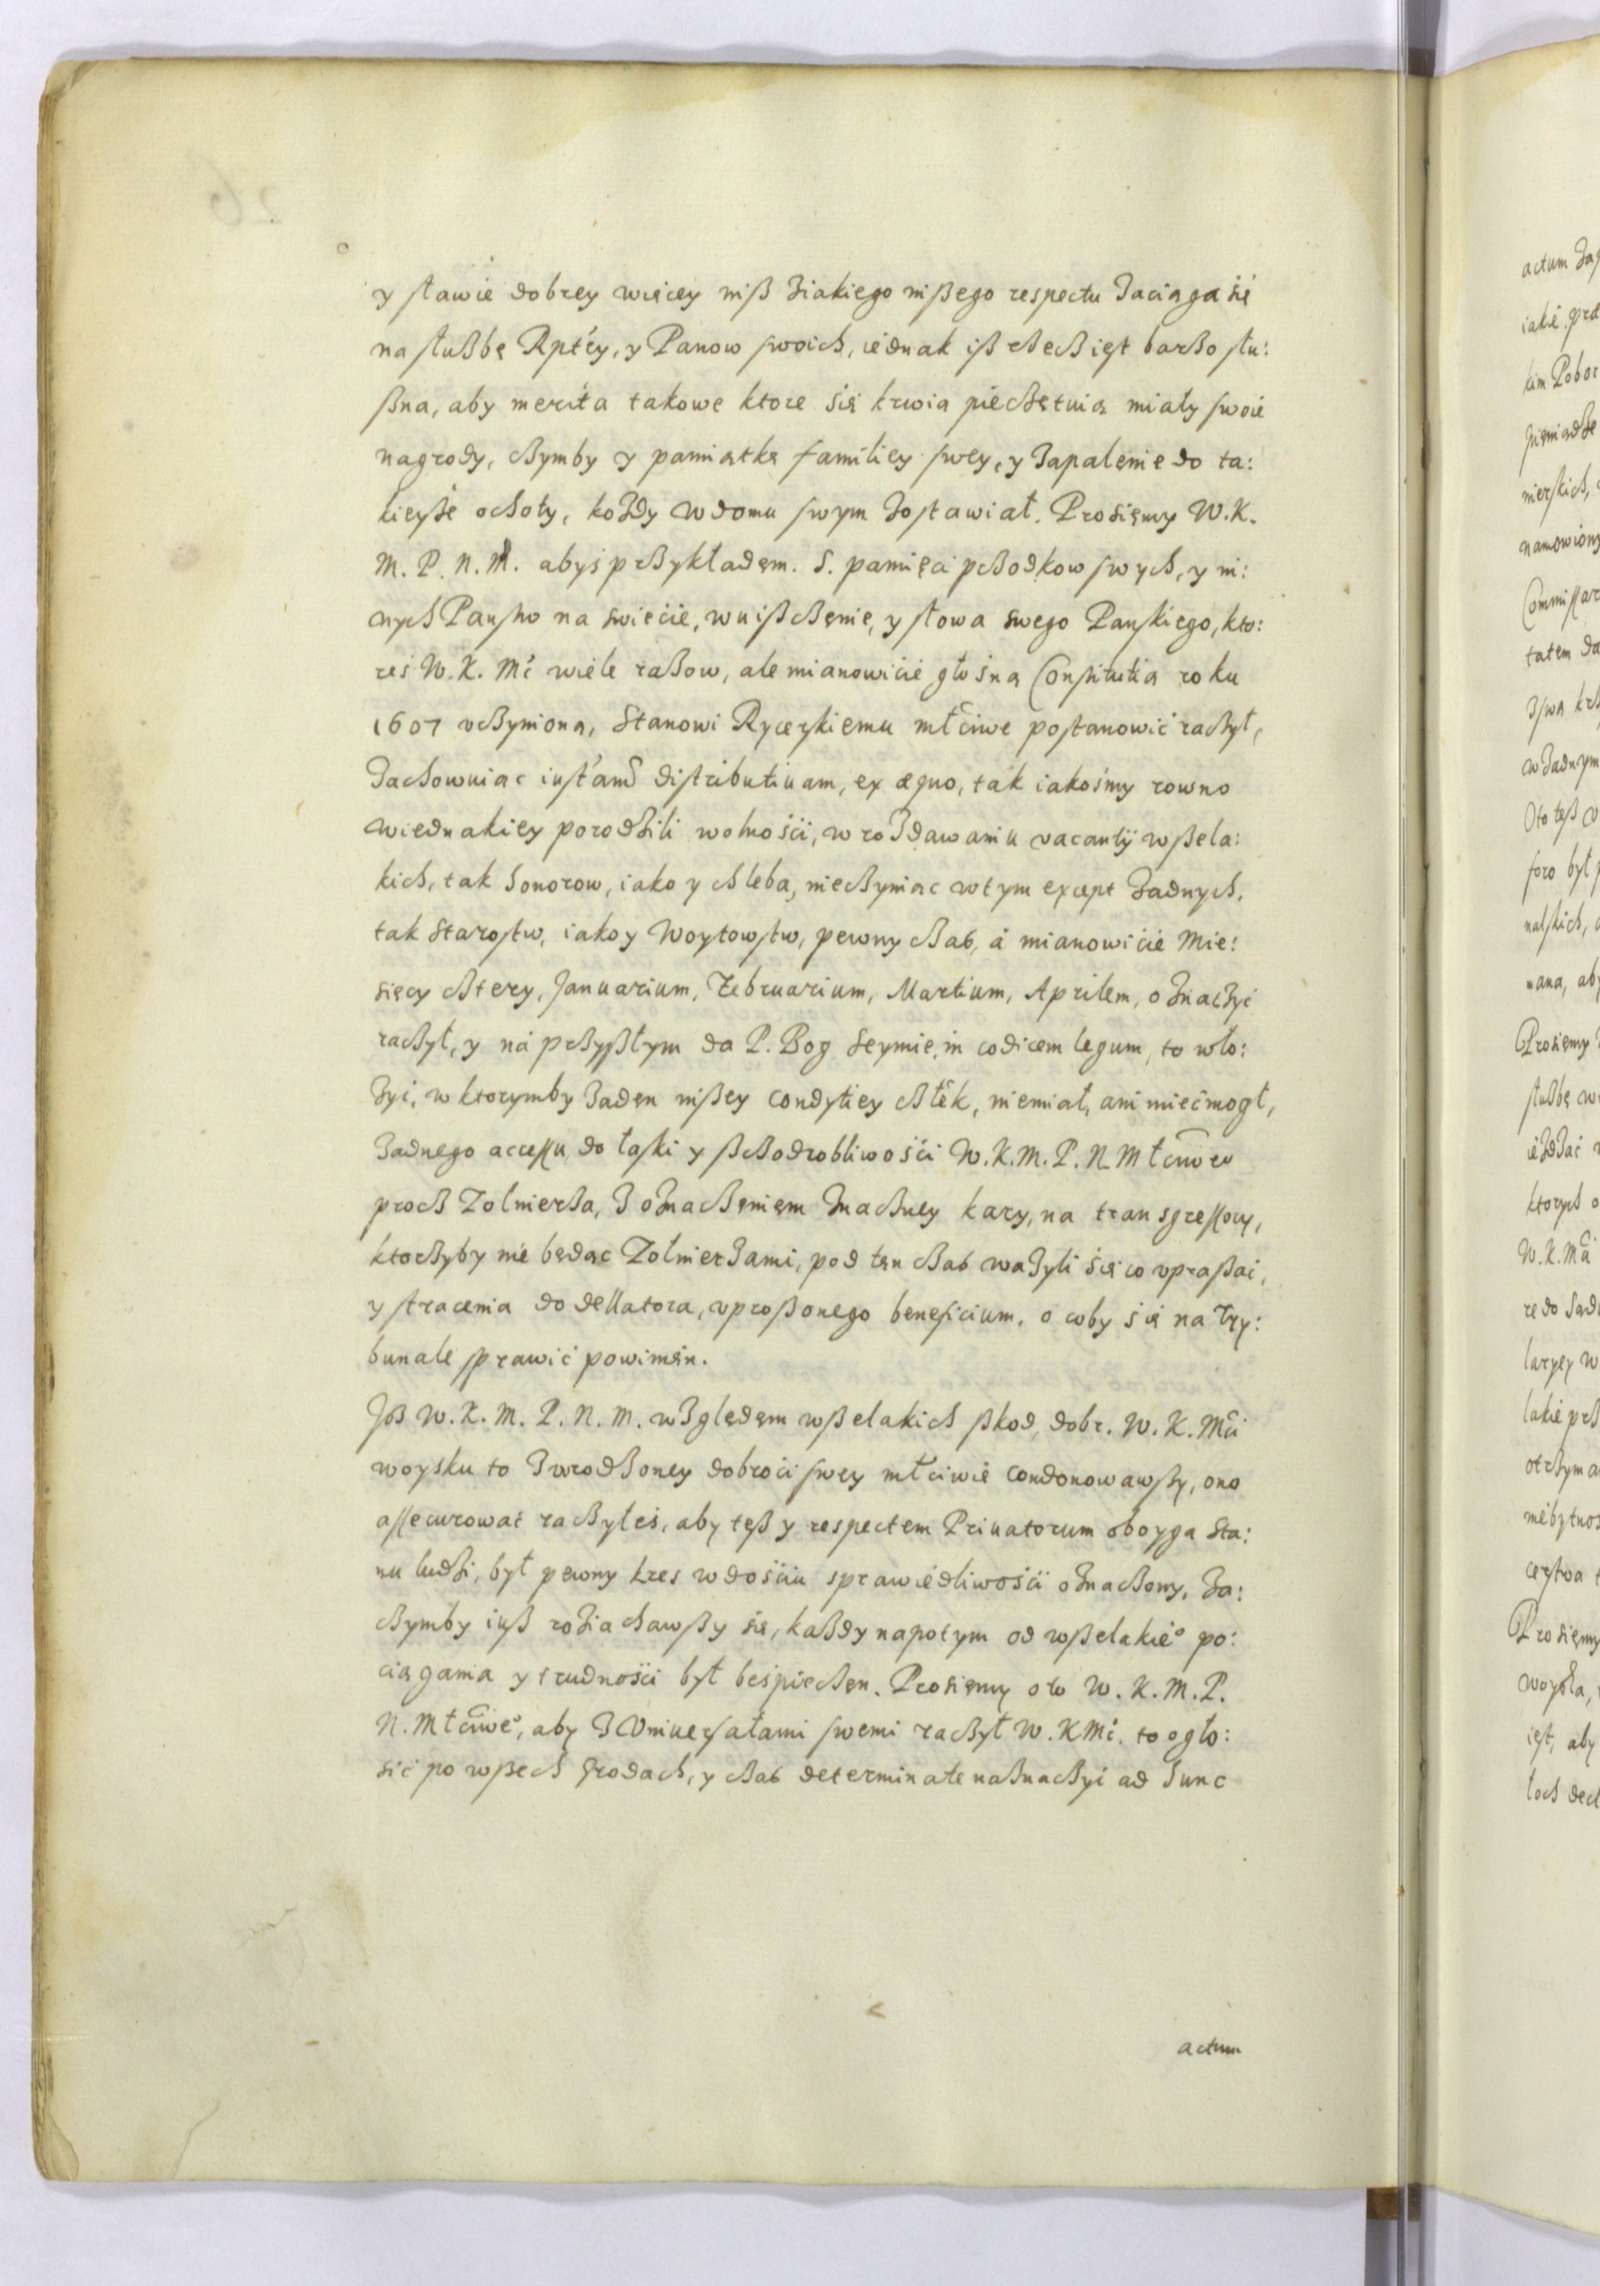 y sławie dobrey więcey niß ziakiego nißego respectu zaciąga się
na służbę Rptéy, y Panow swoich, iednak iß rzecz iest barzo słu:
ßna, aby merita takowe ktore się krwią pieczętuią miały swoie
nagrody, czymby y pamiątkę familiey swey, y zapalenie do ta:
kieyże ochoty, kożdy w domu swym zostawiał. Prosięmy W. K.
M. P. N. M. abyś przykładęm. S. pamięci przodkow swych, y in:
nych Państw na swiecie, wuiszczęnie, y słowa swego Pańskiego, kto:
reś W. K. Mć wiele razow, ale mianowicie głośną Constitutią roku
1607 vczynioną, Stanowi Rycerskiemu młćiwe postanowić raczył,
zachowuiąc iust'am distributiuam, ex æquo, tak iakośmy rowno
wiednakiey porodzili wolności, w rozdawaniu vacantij wßela:
kich, tak honorow, iako y chleba, nieczyniąc wtym except żadnych,
tak Starostw, iako y Woytowstw, pewny czas, á mianowicie Mie:
sięcy cztery, Januarium, Februarium, Martium, Aprilem, oznaczyć
raczył, y ná przyßłym da P. Bog Seymie, in codicem legum, to wło:
zyć, w ktorymby żadęn nißey condytiey człek, niemiał, ani mieć mogł,
żadnego accessu do łaski y ßczodrobliwości W. K. M. P. N. Młćiwe°
procz Zolnierza, z oznaczęnięm znaczney kary, na transgressory,
ktorzyby nie będąc Zołnierzami, pod tęn czas ważyli się co vpraßać,
y stracenia do dellatora, vproßonego beneficium, o coby się na Try:
bunale sprawić powinięn.
Jżß W. K. M. P. N. M. względęm wßelakich ßkod, dobr. W. K. Mći
woysku to z wrodzoney dobroci swey młćiwie condonowawßy, ono
assecurować raczyłeś, aby też y respectem Priuatorum oboyga Sta:
nu ludzi, był pewny kres w dościu sprawiedliwości oznaczony, za:
czymby iuß roziachawßy się, każdy napotym od wßelakie° po:
ciągania y trudności był bespieczęn. Prosięmy o to W. K. M. P.
N. Młćiwe°, aby z Vniuersałami swemi raczył W. K Mć. to ogło:
sić po wßech Grodach, y czas determinate naznaczyć ad hunc
actum